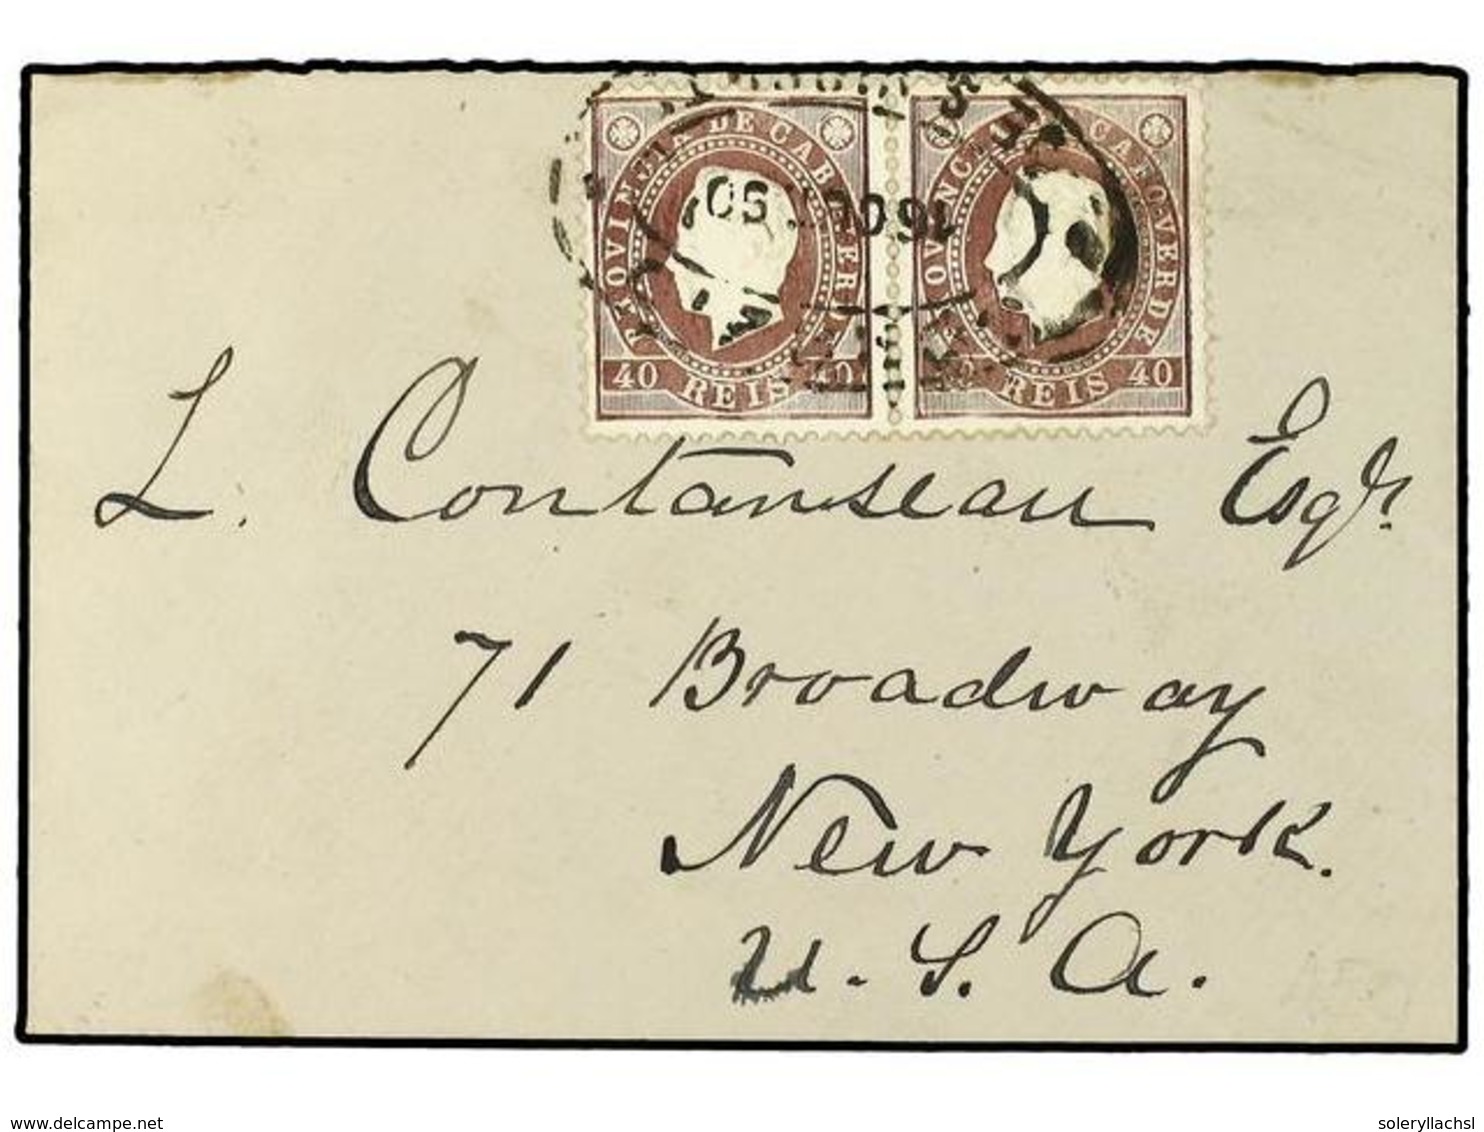 PROVINCIA DE CABO VERDE
40 REIS 40
PROVINCIA DE CABO VERDE
40 REIS 40
L. Contanseau Esqr.
71 Broadway
New York.
U. S. A.
www.delcampe.net
soleryllachsl